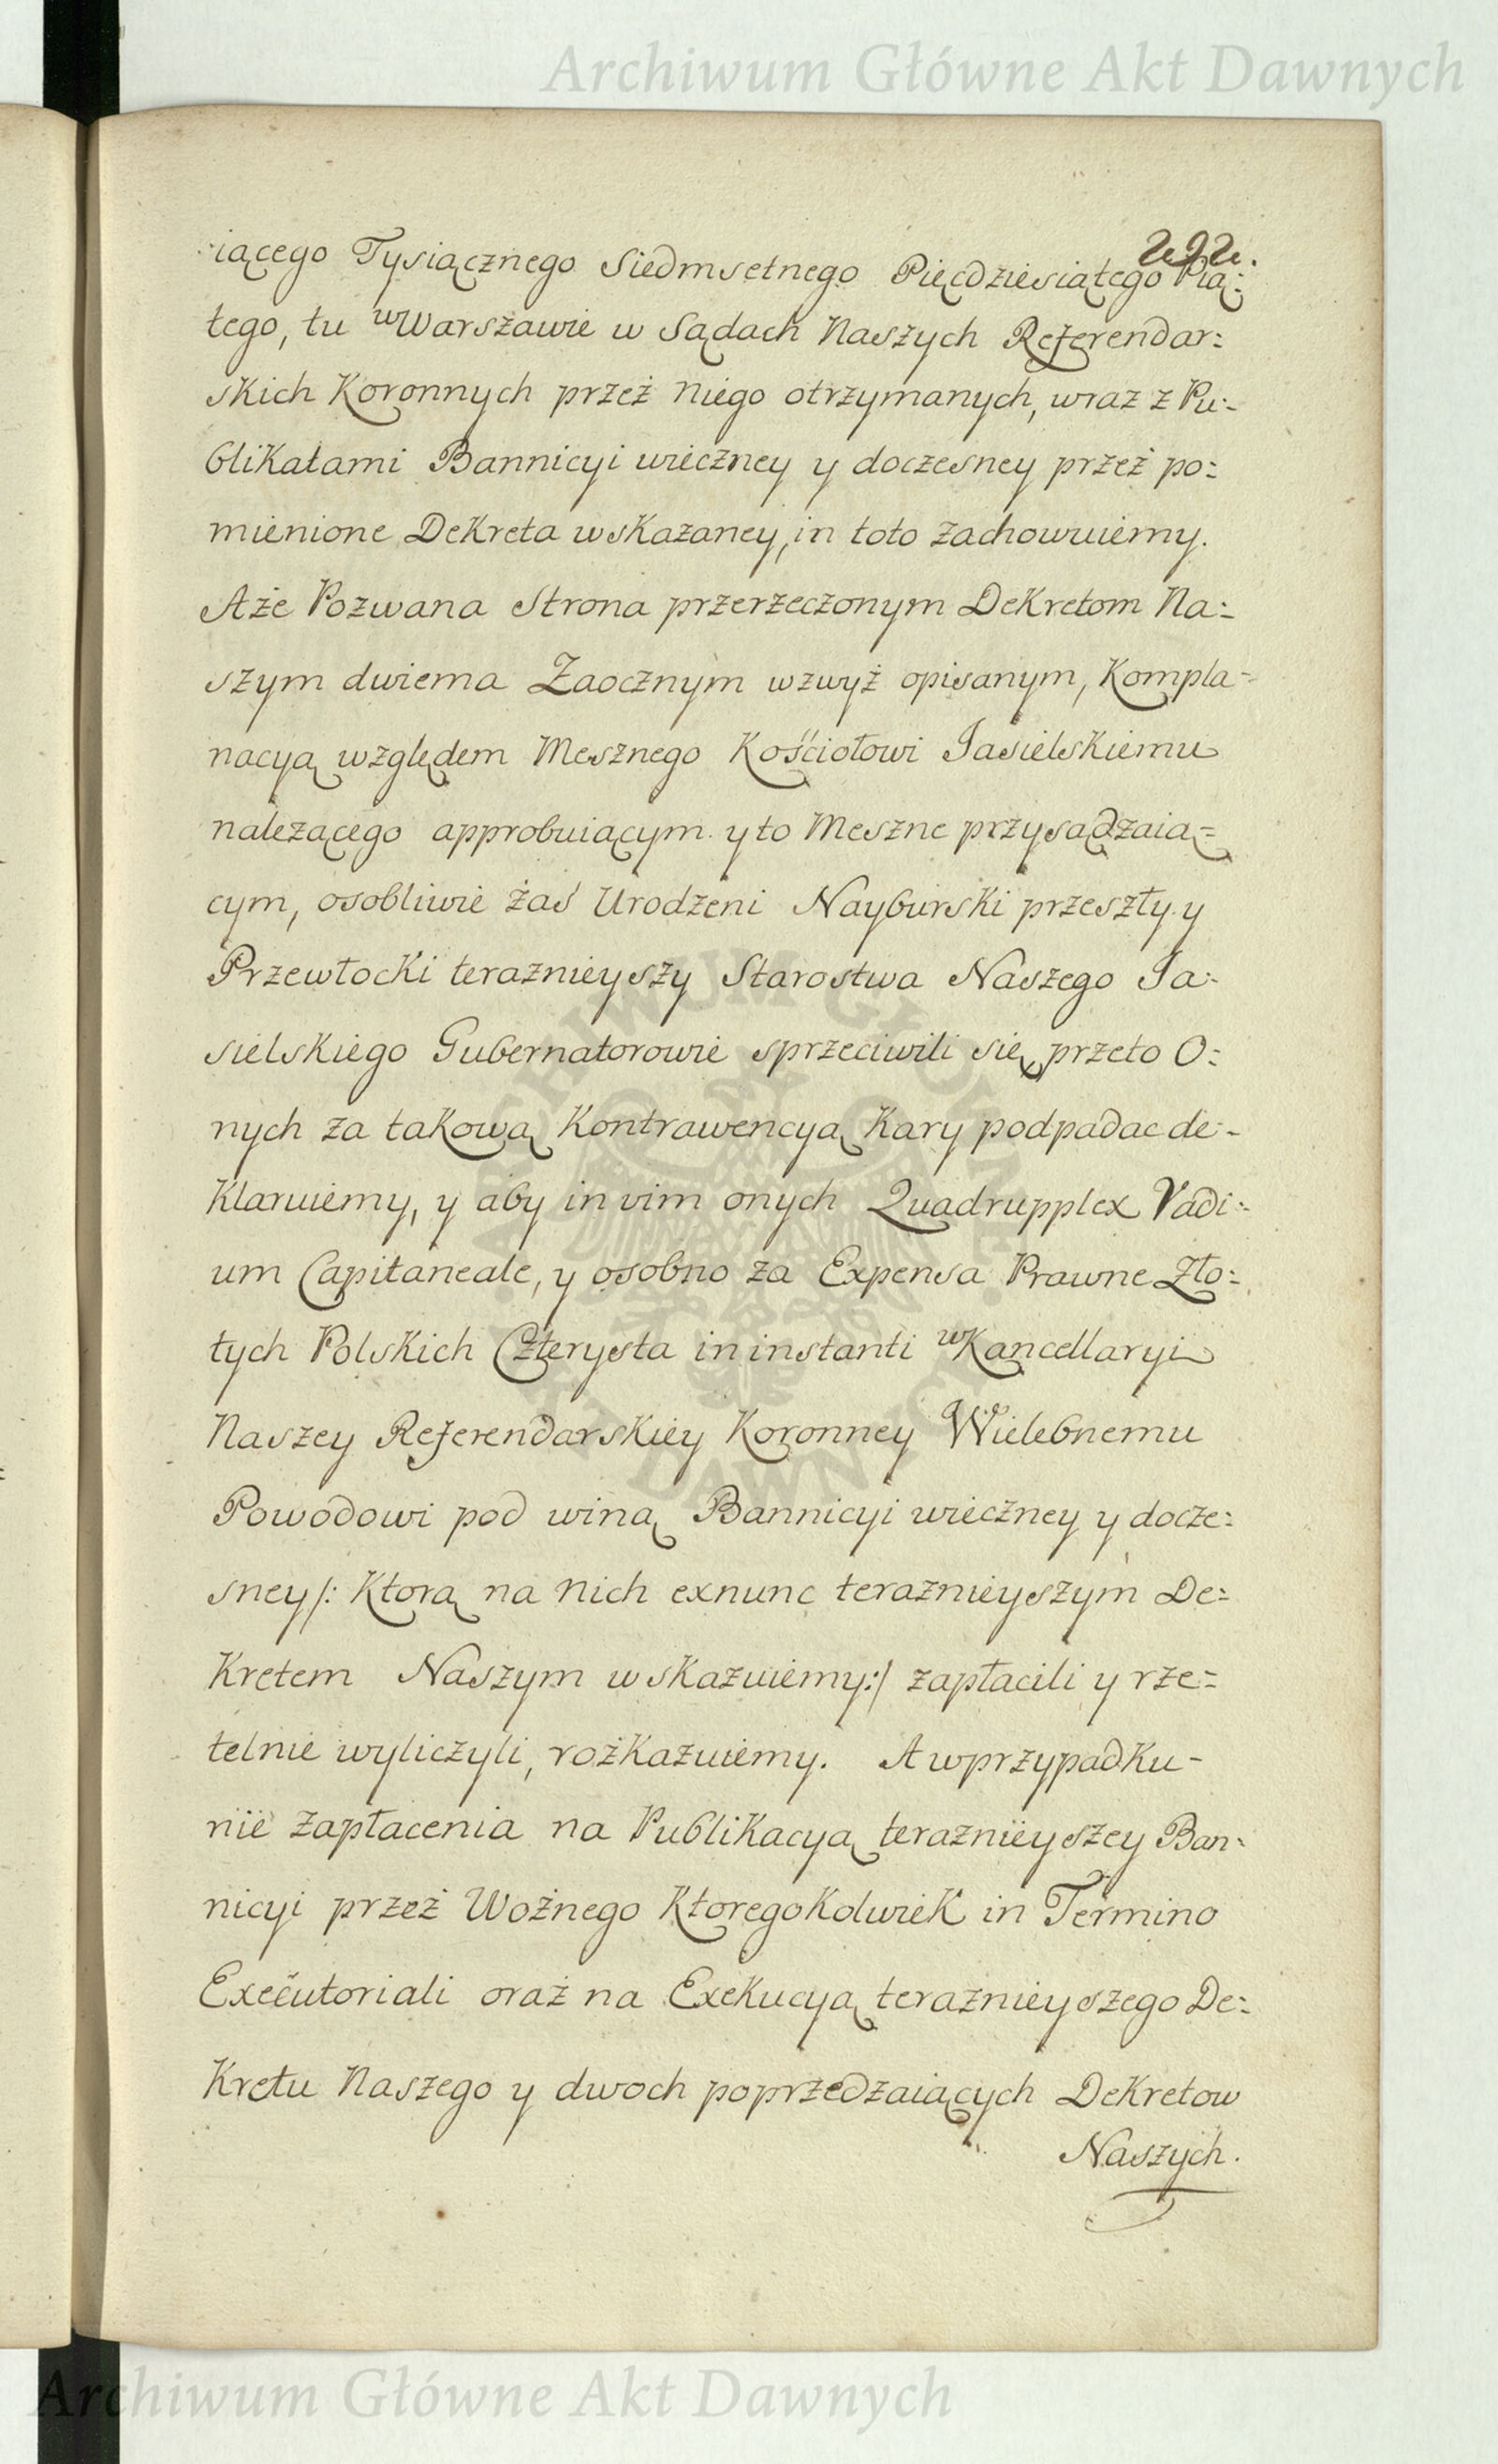 Archiwum Główne Akt Dawnych
292.
iącego Tysiącznego Siedmsetnego Pięcdziesiątego Pią:
tego, tu w Warszawie w Sądach Naszych Referendar:
skich Koronnych przeż niego otrzymanych, wraz z Pu:
blikatami Bannicyi wieczney y doczesney przeż po:
mienione Dekreta wskazaney, in toto zachowuiemy.
Aże Pozwana Strona przerzeczonym Dekretom Na:
szym dwiema Zaocznym wzwyż opisanym, Kompla=
nacyą względem Mesznego Kościołowi Jasielskiemu
należącego approbuiącym y to Meszne przysądzaią=
cym, osobliwie żaś Urodzeni Nayburski przeszły y
Przewłocki teraznieyszy Starostwa Naszego Ja:
sielskiego Gubernatorowie sprzeciwili się, przeto O:
nych za takową Kontrawencyą Kary podpadac de:
klaruiemy, y aby in vim onych Quadrupplex Vadi:
um Capitaneale, y osobno za Expensa Prawne Zło:
tych Polskich Czterysta in instanti w Kancellaryi
Naszey Referendarskiey Koronney Wielebnemu
Powodowi pod winą Bannicyi wieczney y docze:
sney /: Ktorą na nich exnunc teraznieyszym De:
kretem Naszym wskazuiemy :/ zapłacili y rze=
telnie wyliczyli, rożkazuiemy. A w przypadku
nie zapłacenia na Publikacyą teraznieyszey Ban:
nicyi przeż Woźnego Ktoregokolwiek in Termino
Executoriali oraż na Exekucyą teraznieyszego De:
kretu Naszego y dwoch poprzedzaiących Dekretow
Naszych.
ARCHIWUM GŁÓWNE AKT DAWNYCH
Archiwum Główne Akt Dawnych